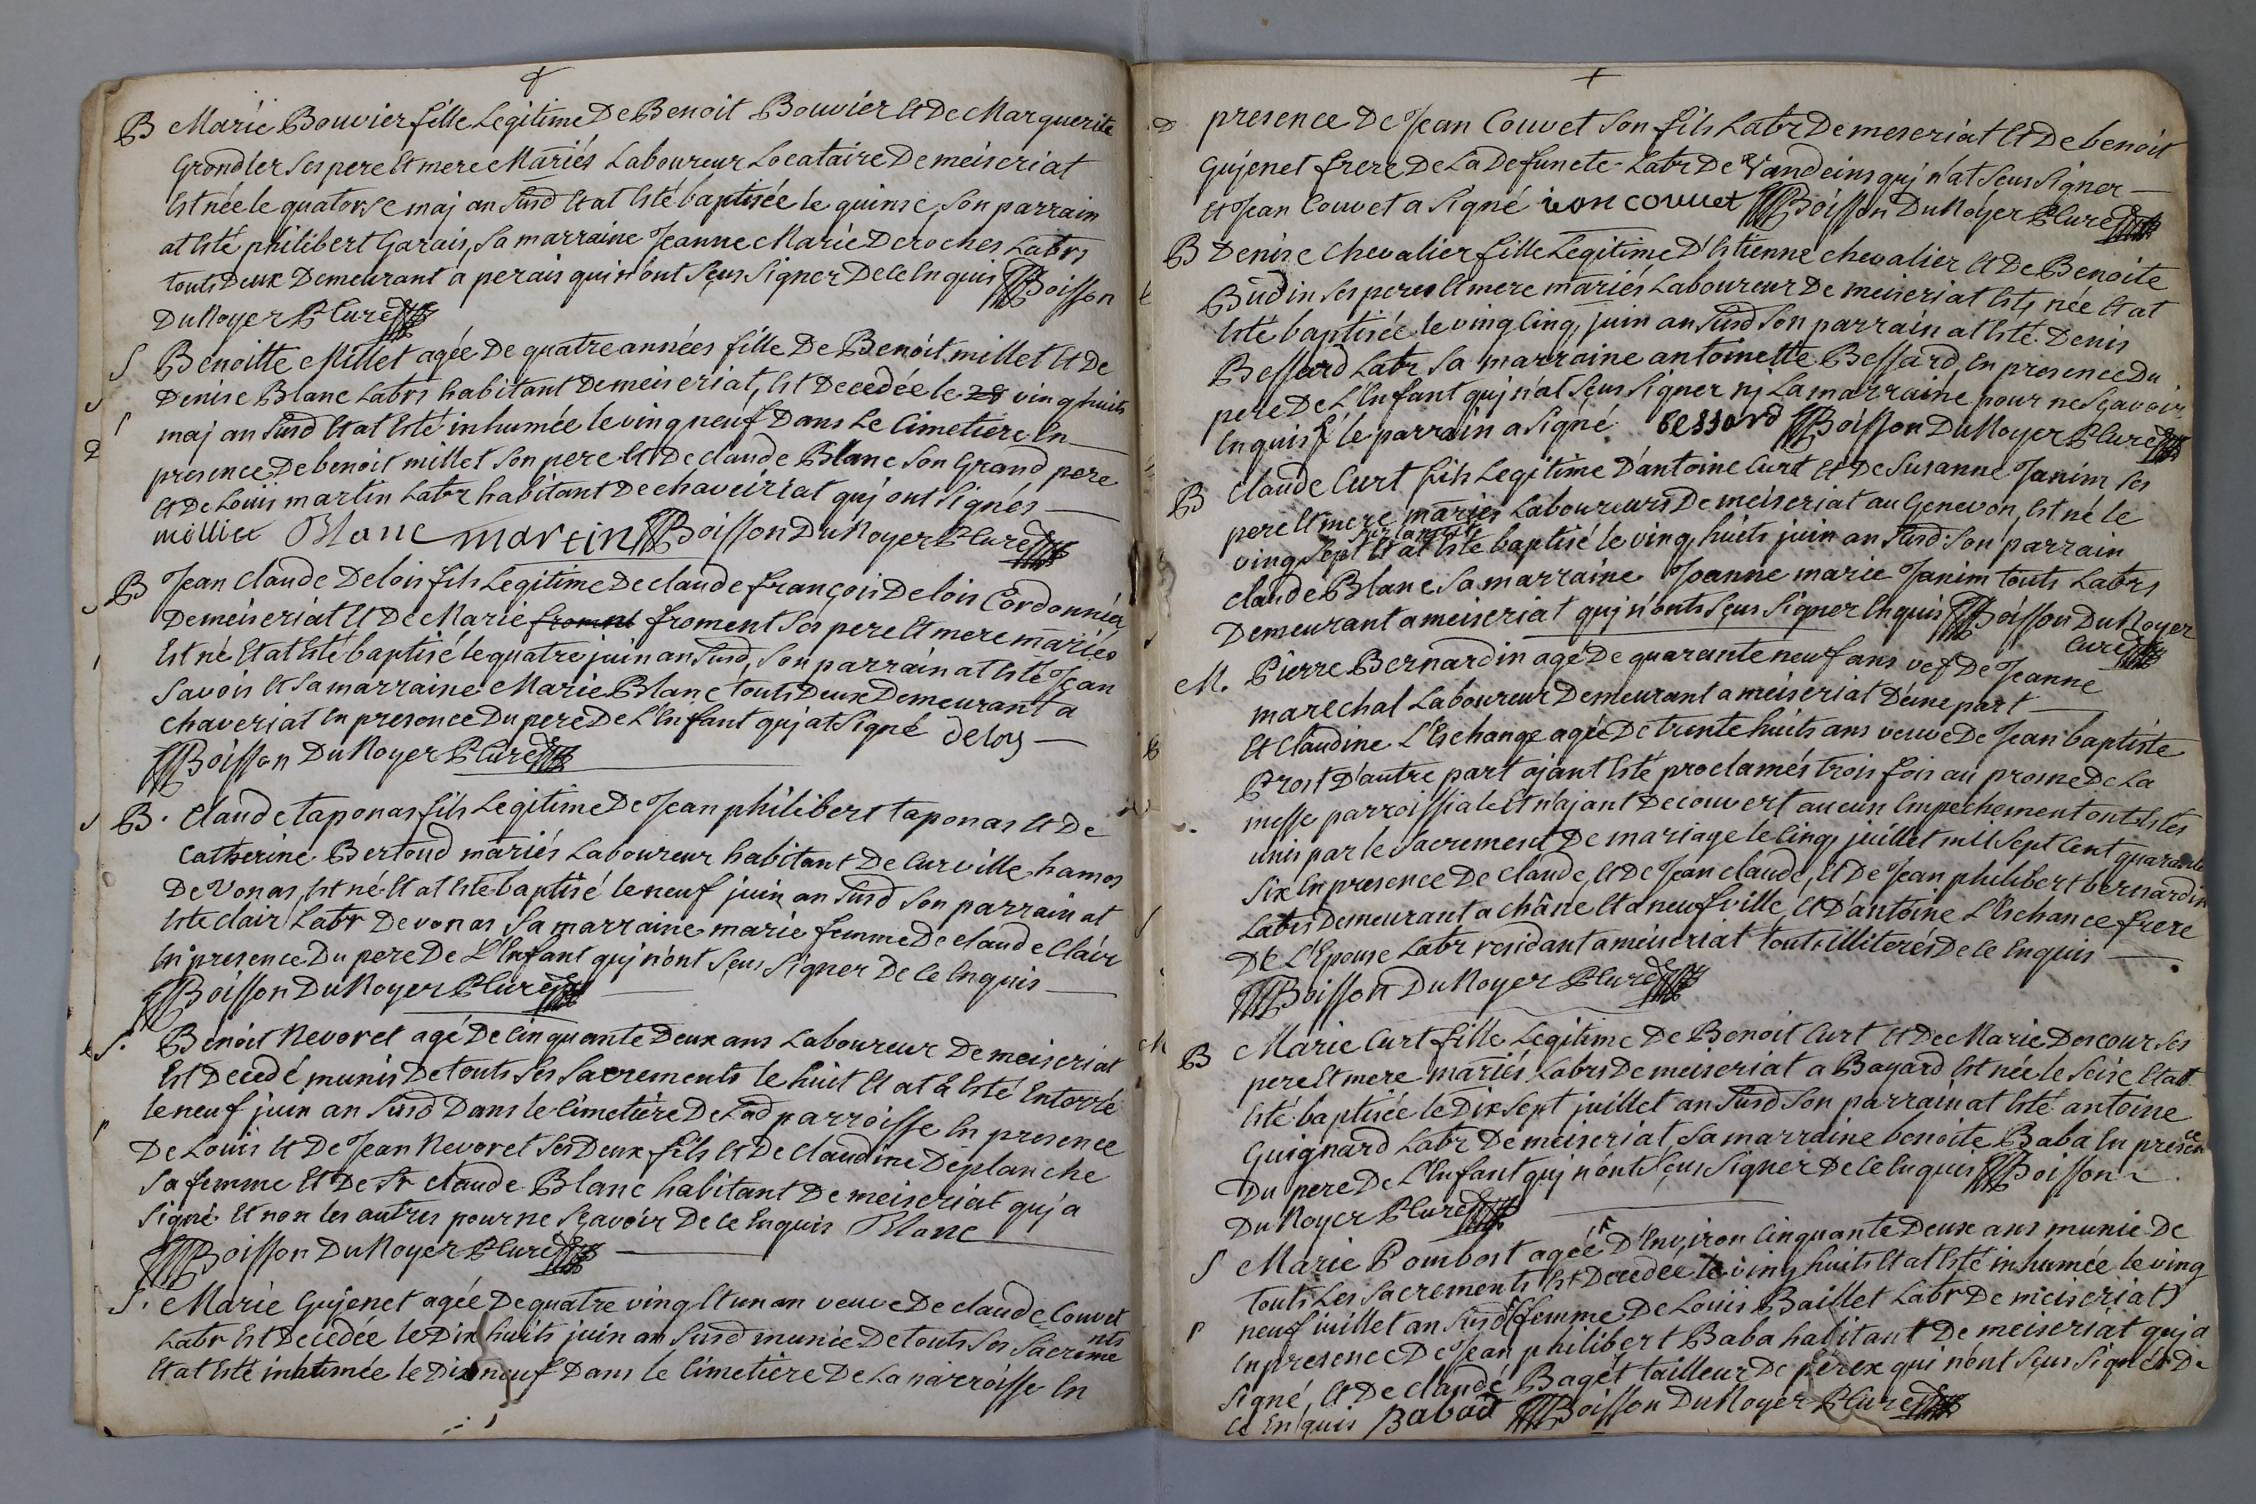 B Marie Bouvier fille Legitime De Benoit Bouvier Et De Marguerite
Grondler ses pere Et mere Mariés Laboureur Locataire De meiseriat
Est née le quatorse maj an susd Et at Esté baptisée le quinse, son parrain
at Esté philibert Garais, sa marraine Jeanne Marie Deroches Labrs
touts Deux Demeurant a perais qui n'ont sçus signer De ce Enquis Boisson
Du Noyer P Curé
S Benoitte Millet agée De quatre années fille De Benoit millet Et De
Denise Blanc Labrs habitant De meiseriat, Est Decedée le 28 ving huits
maj an susd Et at Esté inhumée le ving neuf Dans Le Cimetiere En
presence De benoit millet son pere Et De claude Blanc son Grand pere
Et De Louis martin Labr habitant De chaveiriat quj ont signés
millier Blanc martin Boisson Du Noyer P Curé
B Jean Claude Delois fils Legitime De claude françois Delois Cordonnier
De meiseriat Et De Marie froment froment ses pere Et mere mariés
Est né Et at Esté baptisé le quatre juin an susd, son parrain at Esté Jean
Savois Et sa marraine Marie Blanc touts Deux Demeurant a
chaveriat En presence Du pere De L'Enfant quj at signé deloy
Boisson Du Noyer P Curé
B. Claude taponas fils Legitime De Jean philibert taponas Et De
Catherine Bertoud mariés Laboureur habitant De Curville hamos
De Vonas, Est né Et at Esté baptisé le neuf juin an susd son parrain at
Esté clair Labr De vonas sa marraine marie femme De claude Clair
En presence Du pere De L'Enfant quj n'ont sçus signer De ce Enquis
Boisson Du Noyer P Curé
S. Benoit Nevoret agé De cinquante Deux ans Laboureur De meiseriat
Est Decedé munis De touts ses sacrements le huit Et at Esté Enterré
le neuf juin an susd Dans le Cimetiere De Lad parroisse En presence
De Louis Et De Jean Nevoret ses Deux fils Et De Claudine Deplanche
sa femme Et De Sr claude Blanc habitant De meiseriat quj a
signé Et non les autres pour ne sçavoir De ce Enquis Blanc
Boisson Du Noyer P Curé
S. Marie Gujenet agée De quatre ving Et un an veuve De claude Couvet
Labr Est Decedée le Dix huits juin an susd munie De touts ses sacrements
Et at Esté inhumée le Dix neuf Dans le Cimetiere De La parroisse En
presence De Jean Couvet son fils Labr De meseriat Et De benoit
Gujenet frere De La Defunete Labr De Vandeins quj n'at sçus signer
Et Jean Couvet a signé ion couuet Boisson Du Noyer P Curé
B Denise Chevalier fille Legitime D'Estienne chevalier Et De Benoite
Budin ses peres Et mere mariés Laboureur De meiseriat Est née Et at
Esté baptisée le ving cinq juin an susd son parrain at Esté Denis
Bessard Labr sa marraine antoinette Bessard, En presence Du
pere De L'Enfant quj n'at sçus signer nj La marraine pour ne sçavoir
Enquis Et le parrain a signé bessard Boisson Du Noyer P Curé
B Claude Curt fils Legitime D'antoine Curt Et De Susanne Janim ses
pere Et mere mariés Laboureurs De meiseriat au Genevon, Est né le
ving sept Et at Esté baptisé le ving huits juin an susd son parrain
claude Blanc sa marraine Jeanne marie Janim touts Labrs
Demeurant a meiseriat quj n'onts sçus signer Enquis Boisson Du Noyer
Curé
M. Pierre Bernardin agé De quarante neuf ans vef De Jeanne
marechal Laboureur Demeurant a meiseriat D'eune part
Et Claudine L'Eschange agée De trente huits ans veuve De Jean baptiste
Prost D'autre part ajant Esté proclamés trois fois au prosne De La
messe parroissiale Et n'ajant Decouvert aucun Empechement ont Estés
unis par le sacrement De mariage le Cinq juillet mil sept Cent quarante
six En presence De claude, Et De Jean claude, Et De Jean philibert bernardin
Labrs Demeurant a châne Et a neufville, Et D'antoine L'Eschance frere
De L'Epouse Labr residant a meiseriat touts illiterés De ce Enquis
Boisson Du Noyer P Curé
B Marie Curt fille Legitime De Benoit Curt Et De Marie Descour ses
pere Et mere mariés Labrs De meiseriat a Bayard Est née le seise Et at
Esté baptisée le Dix sept juillet an susd son parrain at Esté antoine
Guignard Labr De meiseriat, sa marraine benoite Baba En presence
Du pere De L'Enfant quj n'ont sçus signer De ce Enquis Boisson
Du Noyer P Curé
S Marie Pombost agée D'Environ cinquante Deux ans munie De
touts Les sacrements Est Decedée le ving huits Et at Esté inhumée le ving
neuf juillet an susd (femme De Louis Baillet Labr De meiseriat)
En presence De Jean philibert Baba habitant De meiseriat quj a
signé, Et De claude Baget tailleur De perex qui n'ont sçus signér De
ce Enquis Babad Boisson Du Noyer P Curé